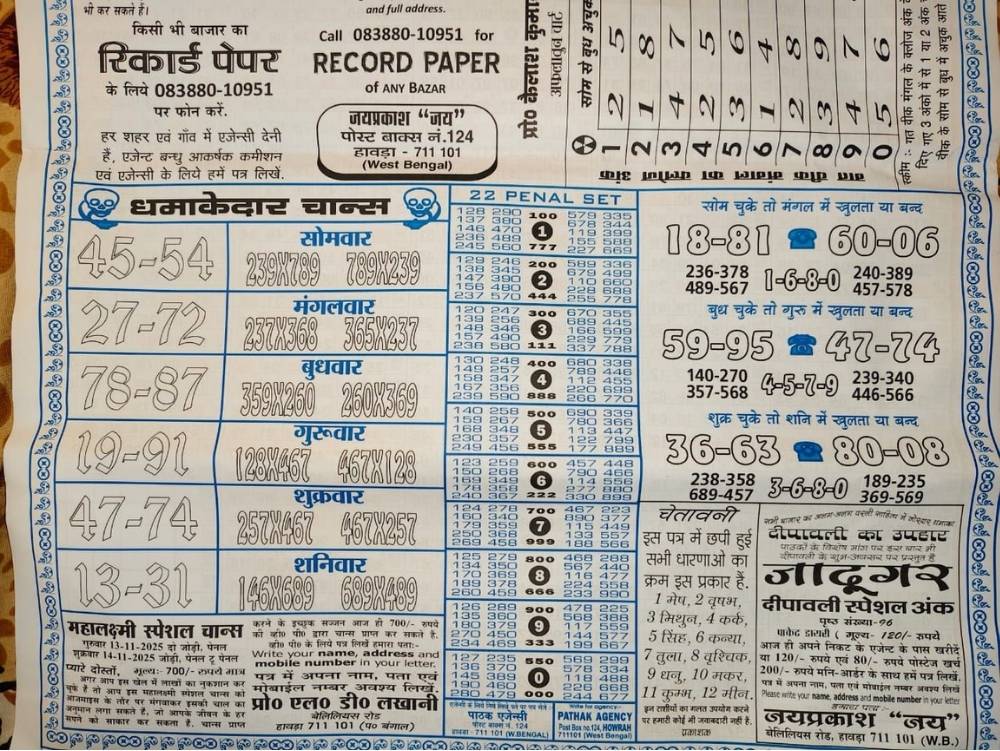 भी कर सकते हैं।
किसी भी बाजार का
रिकार्ड पेपर
के लिये 083880-10951
पर फोन करें.
हर शहर एवं गाँव में एजेन्सी देनी
हैं, एजेन्ट बन्धु आकर्षक कमीशन
एवं एजेन्सी के लिये हमें पत्र लिखें.
and full address.
Call 083880-10951 for
RECORD PAPER
of ANY BAZAR
जयप्रकाश “जय”
पोस्ट बाक्स नं.124
हावड़ा - 711 101
(West Bengal)
प्रो० कैलाश कुमा
अफलातून चार्ट
सोम से बुध अचुक
5 8 7 5 6 4 8 9 7 6
2 1 4 2 3 1 2 3 4 5
1 2 3 4 5 6 7 8 9 0
धमाकेदार चान्स
45-54
सोमवार
239X789 789X239
27-72
मंगलवार
237X368 365X237
78-87
बुधवार
359X260 260X369
19-91
गुरूवार
128X467 467X128
47-74
शुक्रवार
257X467 467X257
13-31
शनिवार
146X689 689X489
22 PENAL SET
128 290 100 579 335
137 380 678 344
146 470 1 119 399
236 489 155 588
245 560 777 227 669
129 246 200 589 336
138 345 679 499
147 390 2 110 660
156 480 228 688
237 570 444 255 778
120 247 300 670 355
139 256 689 445
148 346 3 166 599
157 490 229 779
238 580 111 337 788
130 248 400 680 338
149 257 789 446
158 347 4 112 455
167 356 220 699
239 590 888 266 770
140 258 500 690 339
159 267 780 366
168 348 5 113 447
230 357 122 799
249 456 555 177 889
123 259 600 457 448
150 268 790 466
169 349 6 114 556
178 358 277 880
240 367 222 330 899
124 278 700 467 223
160 340 890 377
179 359 7 115 449
250 368 133 557
269 458 999 188 566
125 279 800 468 288
134 350 567 440
170 369 8 116 477
189 378 224 558
260 459 666 233 990
126 289 900 478 225
135 360 568 388
180 379 9 117 559
270 450 144 577
234 469 333 199 667
127 235 550 569 299
136 370 578 334
145 389 0 118 488
190 460 226 668
280 479 000 244 677
सोम चुके तो मंगल में खुलता या बन्द
18-81 60-06
236-378 1-6-8-0 240-389
489-567 457-578
बुध चुके तो गुरू में खुलता या बन्द
59-95 47-74
140-270 4-5-7-9 239-340
357-568 446-566
शुक्र चुके तो शनि में खुलता या बन्द
36-63 80-08
238-358 3-6-8-0 189-235
689-457 369-569
महालक्ष्मी स्पेशल चान्स
गुरुवार 13-11-2025 दो जोड़ी, पेनल
शुक्रवार 14-11-2025 जोड़ी, पेनल टू पेनल
प्यारे दोस्तों, मूल्य:- 700/- रुपये मात्र
अगर आप इस खेल में लाखों का नुकशान कर
चुके हैं तो आप इस महालक्ष्मी स्पेशल चान्स को
आजमाइस के तौर पर मंगवाकर इसकी चाल का
अनुमान लगा सकते हैं, जो आपके जीवन के हर
सपने को साकार कर सकता है. चान्स प्राप्त
करने के इच्छुक सज्जन आज ही 700/- रुपये
की व्ही० पी० द्वारा चान्स प्राप्त कर सकते है.
व्ही० पी० के लिये पत्र लिखें हमारा पता:-
Write your name, address and
mobile number in your letter.
पत्र में अपना नाम, पता एवं
मोबाईल नम्बर अवश्य लिखें.
प्रो० एल० डी० लखानी
बेलिलियस रोड
हावड़ा 711 101 (प० बंगाल)
पाठक एजेन्सी
पोस्ट बाक्स नं. 124
हावड़ा 711 101 (W.BENGAL)
Write for agency:-
PATHAK AGENCY
Post Box no.124, HOWRAH
711101 (West Bengal)
चेतावनी
इस पत्र में छपी हुई
सभी धारणाओं का
क्रम इस प्रकार हैं.
1 मेष, 2 वृषभ,
3 मिथुन, 4 कर्क,
5 सिंह, 6 कन्या,
7 तुला, 8 वृश्चिक,
9 धनु, 10 मकर,
11 कुम्भ, 12 मीन.
इन राशीयों का गलत उपयोग करने
पर हमारी कोई भी जवाबदारी नहीं है.
प्रकाशक
दीपावली का उपहार
पाठकों के विशेष मांग पर इस बार भी
दीपावली के शुभ-अवसर पर प्रस्तुत है
जादूगर
दीपावली स्पेशल अंक
पृष्ठ संख्या-96
पाकेट डायरी ( मूल्य- 120/- रुपये
आज ही अपने निकट के एजेन्ट के पास खरीदें
या 120/- रुपये एवं 80/- रुपये पोस्टेज खर्च
200/- रुपये मनि-आर्डर के साथ हमें पत्र लिखें.
पत्र में अपना नाम, पता एवं मोबाईल नम्बर अवश्य लिखें
Please write your name, address and mobile number in your letter
जयप्रकाश “जय”
बेलिलियस रोड, हावड़ा 711 101 (W.B.)